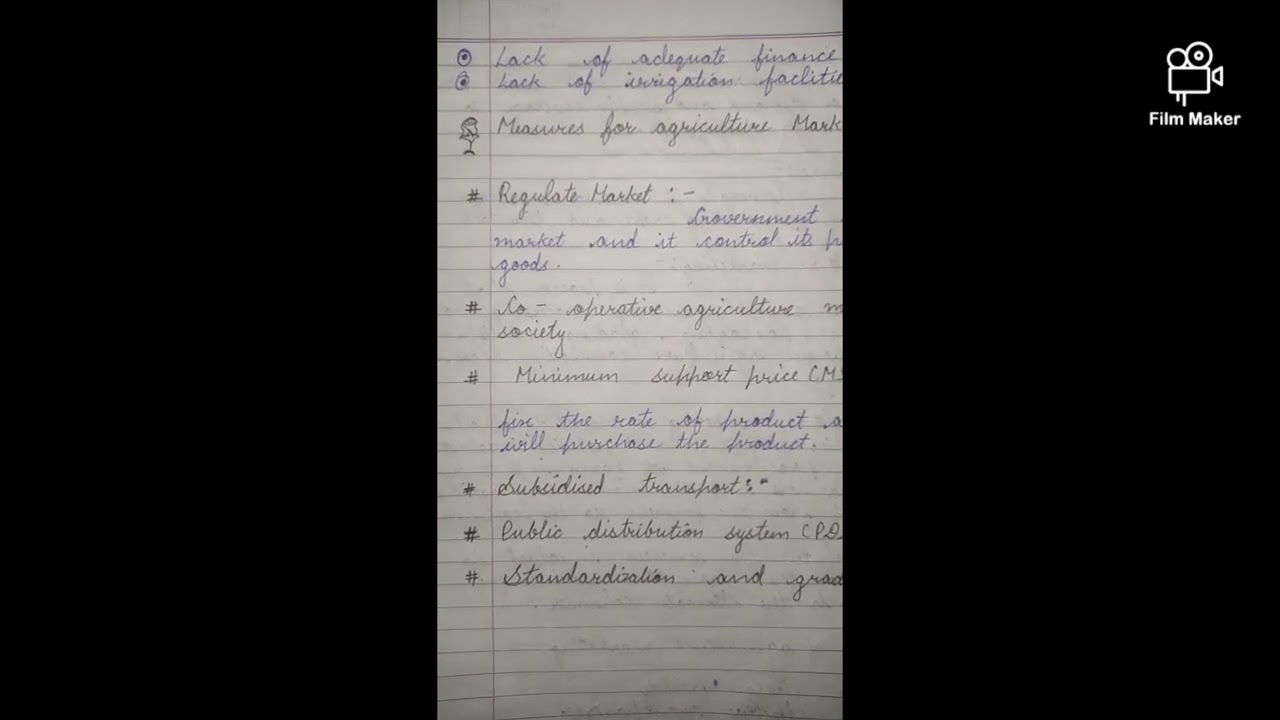 Lack of adequate finance
Lack of irrigation faciliti
Measures for agriculture Mark
# Regulate Market :-
Government
market and it control its p
goods.
# Co - operative agriculture m
society
# Minimum support price (MS
fix the rate of product a
will purchase the product.
# Subsidised transport :-
# Public distribution system (PD
# Standardization and grad
Film Maker